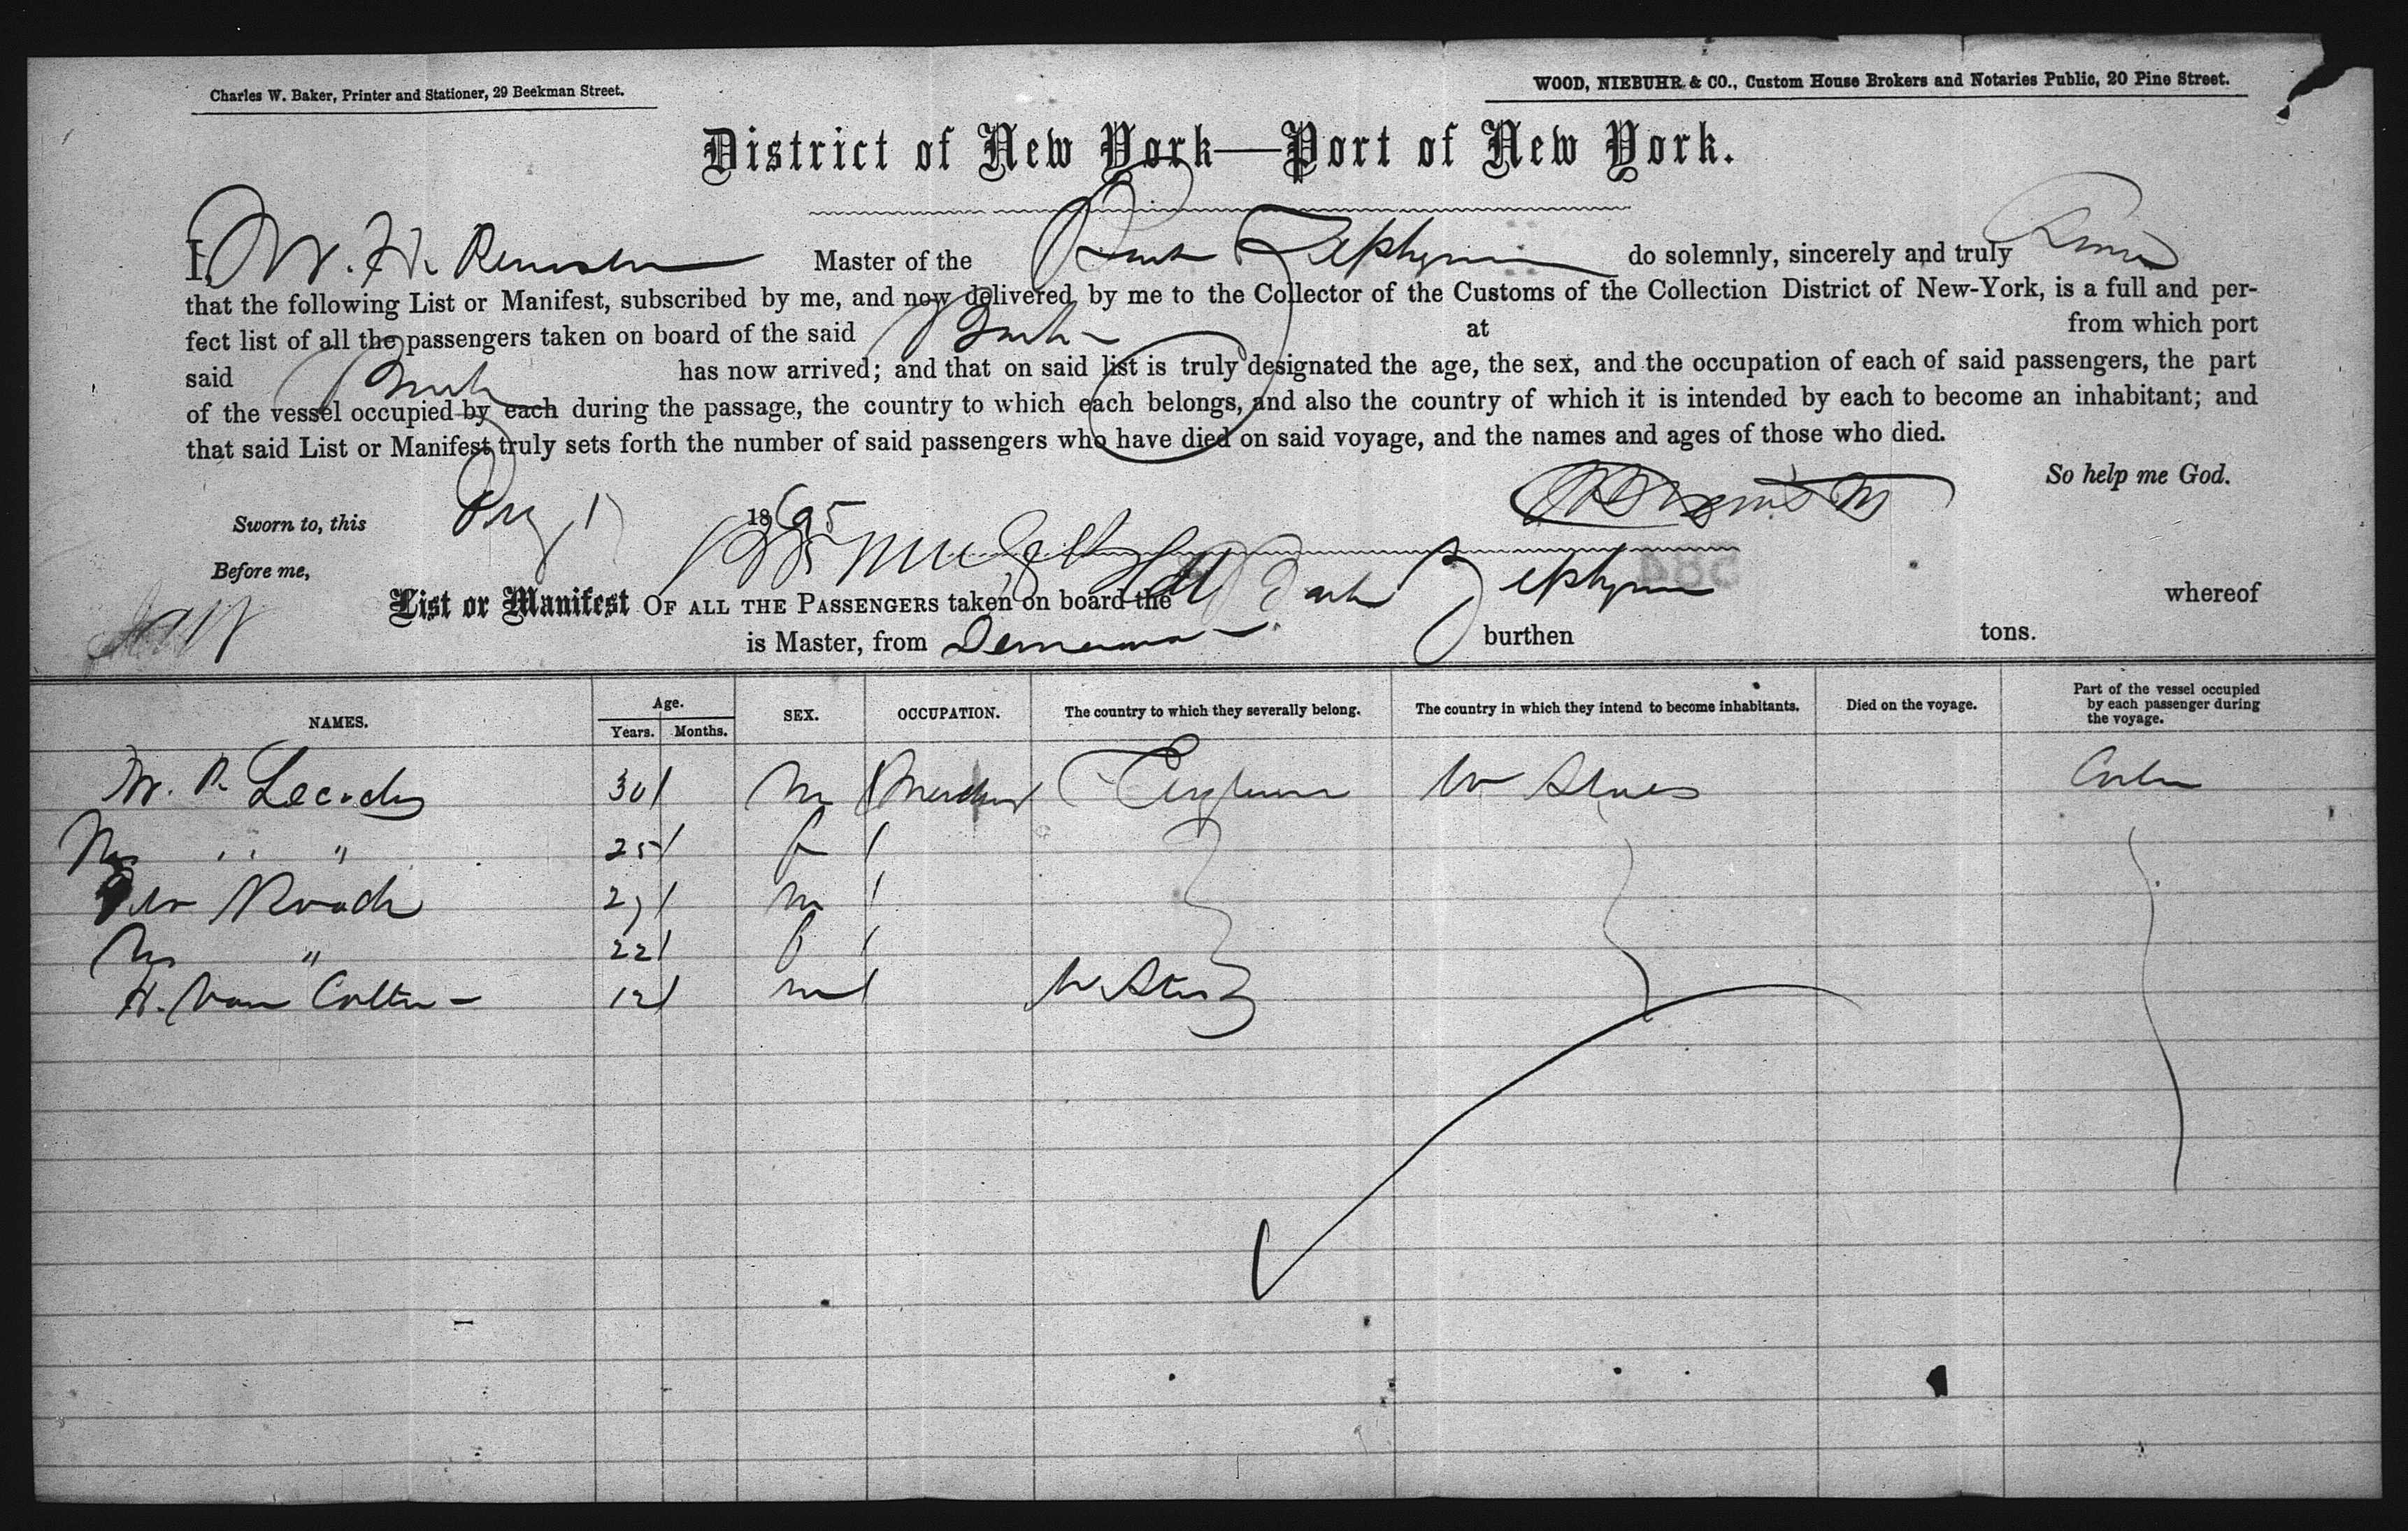 Charles W. Baker, Printer and Stationer, 29 Beekman Street.
WOOD, NIEBUHR & CO., Custom House Brokers and Notaries Public, 20 Pine Street.
District of New York—Port of New York.
I, W. H. Master of the Bark Zephyrine do solemnly, sincerely and truly
that the following List or Manifest, subscribed by me, and now delivered by me to the Collector of the Customs of the Collection District of New-York, is a full and per-
fect list of all the passengers taken on board of the said Bark at from which port
said Bark has now arrived; and that on said list is truly designated the age, the sex, and the occupation of each of said passengers, the part
of the vessel occupied by each during the passage, the country to which each belongs, and also the country of which it is intended by each to become an inhabitant; and
that said List or Manifest truly sets forth the number of said passengers who have died on said voyage, and the names and ages of those who died.
So help me God.
Sworn to, this Aug 1865
Before me,
List or Manifest OF ALL THE PASSENGERS taken on board the Bark Zephyrine whereof
is Master, from Demerara burthen tons.
NAMES. Age. Years. Months. SEX. OCCUPATION. The country to which they severally belong. The country in which they intend to become inhabitants. Died on the voyage. Part of the vessel occupied by each passenger during the voyage.
W. R. 30 M Merchant England U States Cabin
Mrs " " 25 f
Roach 27 m
Mrs " 22 f
H. Van 12 m U States